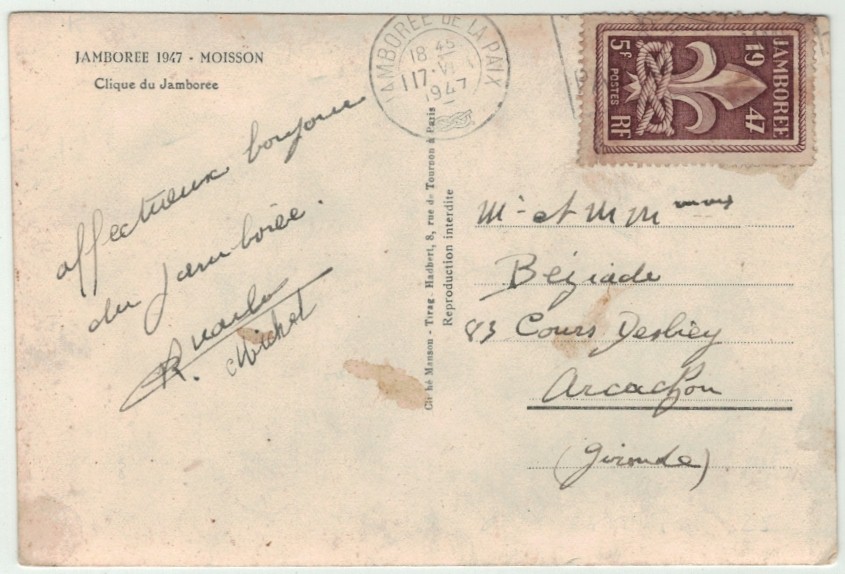 JAMBOREE 1947 - MOISSON
Clique du Jamboree
affectueux bonjour
du jamboree.
R.
Michel
JAMBORÉE DE LA PAIX
18 45
17 VI
1947
JAMBOREE
1947
5F
POSTES
RF
Cliché Manson - Tirag. Hadbert, 8, rue de Tournon à Paris
Reproduction interdite
Mr et Mme
Béziade
83 Cours Desbiey
Arcachon
(Gironde)